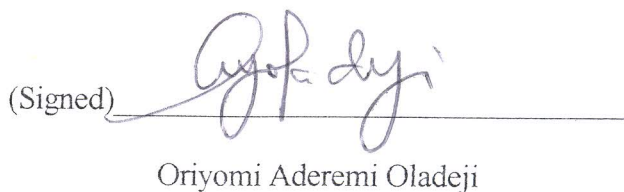 (Signed)
Oriyomi Aderemi Oladeji